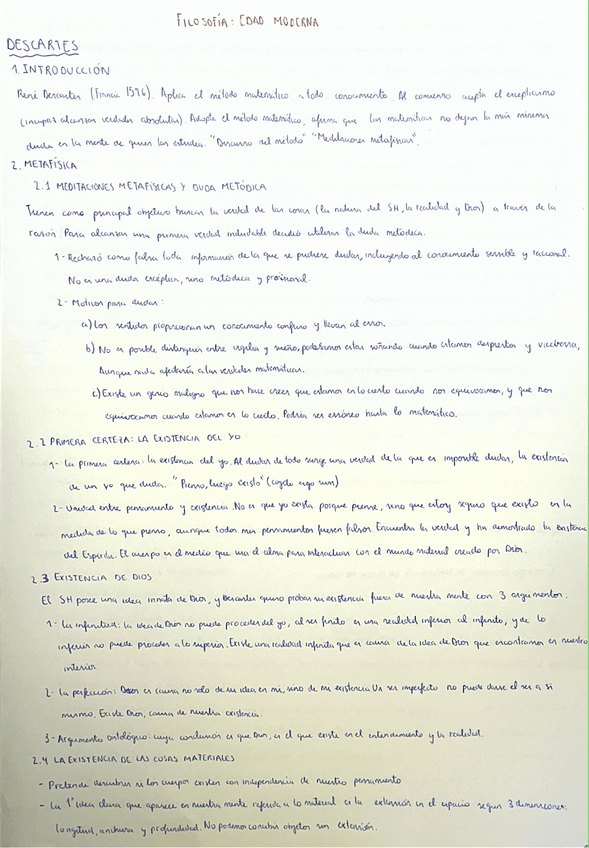 FILOSOFÍA: EDAD MODERNA
DESCARTES
1. INTRODUCCIÓN
René Descartes (Francia 1596). Aplica el método matemático a todo conocimiento. Al comienzo acepta el escepticismo
(incapaz alcanzar verdades absolutas). Adopta el método matemático, afirma que las matemáticas no dejan la más mínima
duda en la mente de quien las estudia. "Discurso del método" "Meditaciones metafísicas".
2. METAFÍSICA
2.1 MEDITACIONES METAFÍSICAS Y DUDA METÓDICA
Tienen como principal objetivo buscar la verdad de las cosas (la natura del SH, la realidad y Dios) a través de la
razón. Para alcanzar una primera verdad indudable decidió utilizar la duda metódica.
1- Rechazó como falsa toda información de la que se pudiese dudar, incluyendo al conocimiento sensible y racional.
No es una duda escéptica, sino metódica y provisional.
2- Motivos para dudar:
a) Los sentidos proporcionan un conocimiento confuso y llevan al error.
b) No es posible distinguir entre vigilia y sueño, podríamos estar soñando cuando estamos despiertos y viceversa,
Aunque nada afectaría a las verdades matemáticas.
c) Existe un genio maligno que nos hace creer que estamos en lo cierto cuando nos equivocamos, y que nos
equivocamos cuando estamos en lo cierto. Podría ser erróneo hasta lo matemático.
2.2 PRIMERA CERTEZA: LA EXISTENCIA DEL YO
1- La primera certeza: la existencia del yo. Al dudar de todo surge una verdad de la que es imposible dudar, la existencia
de un yo que duda. "Pienso, luego existo" (cogito ergo sum)
2- Unidad entre pensamiento y existencia. No es que yo exista porque piense, sino que estoy seguro que existo en la
medida de lo que pienso, aunque todos mis pensamientos fuesen falsos. Encuentra la verdad y ha demostrado la existencia
del Espíritu. El cuerpo es el medio que usa el alma para interactuar con el mundo material creado por Dios.
2.3 EXISTENCIA DE DIOS
El SH posee una idea innata de Dios, y Descartes quiso probar su existencia fuera de nuestra mente con 3 argumentos.
1- La infinitud: la idea de Dios no puede proceder del yo, al ser finito es una realidad inferior al infinito, y de lo
inferior no puede proceder a lo superior. Existe una realidad infinita que es causa de la idea de Dios que encontramos en nuestro
interior
2- La perfección: Dios es causa no solo de su idea en mí, sino de mi existencia. Un ser imperfecto no puede darse el ser a sí
mismo. Existe Dios, causa de nuestra existencia.
3- Argumento ontológico: cuya conclusión es que Dios, es el que existe en el entendimiento y la realidad.
2.4 LA EXISTENCIA DE LAS COSAS MATERIALES
- Pretende descubrir si los cuerpos existen con independencia de nuestro pensamiento
- La 1ª idea clara que aparece en nuestra mente referida a lo material es la extensión en el espacio según 3 dimensiones:
longitud, anchura y profundidad. No podemos concebir objetos sin extensión.